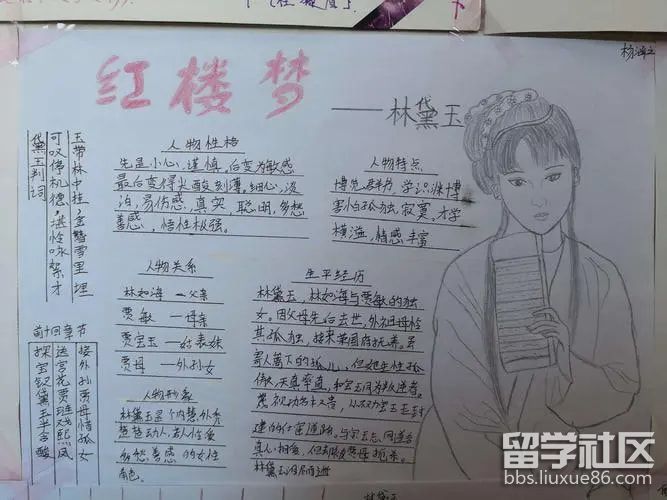 红楼梦
——林黛玉
人物性格
先是小心、谨慎,后变为敏感
最后变得尖酸刻薄,细心,淡
泊,易伤感,真实,聪明,多愁
善感,悟性极强。
人物特点
博览群书,学识渊博
寂寞,才学
横溢,情感丰富
黛玉判词
可叹停机德,堪怜咏絮才
玉带林中挂,金簪雪里埋
人物关系
林如海—父亲
贾敏—母亲
贾宝玉—姑表妹
贾母—外孙女
生平经历
林黛玉,林如海与贾敏的独
女。因父母先后去世,外祖母怜
其孤独,接来荣国府抚养。虽
寄人篱下的孤儿,但她生性孤
傲,天真率直,和宝玉同为叛逆者。
蔑视功名
建的仕宦道路。与宝玉
真心相爱,但
林黛玉
前十回章节
接外孙贾母惜孤女
送宫花贾琏戏熙凤
探宝钗黛玉半含酸
人物形象
林黛玉是个内慧外秀
楚楚动人,惹人怜爱
多愁善感的女性
角色。
留学社区
bbs.liuxue86.com